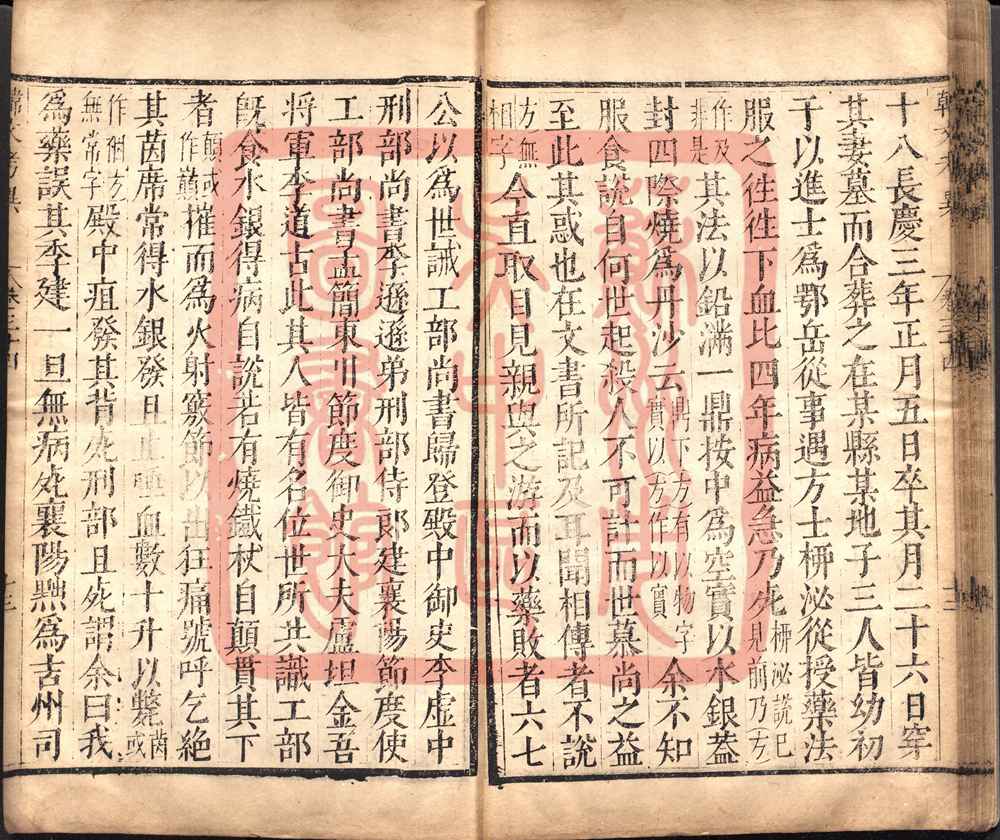 十八長慶三年正月五日卒其月二十六日穿
其妻墓而合葬之在某縣某地子三人皆幼初
于以進士爲鄂岳從事遇方士栁泌從授藥法
服之徃徃下血比四年病益急乃死栁泌說已見前乃方
作及非是其法以鉛滿一鼎按中爲空實以水銀葢
封四際燒爲丹沙云鼎下方有以物字實以方作以實余不知
服食說自何世起殺人不可計而世慕尚之益
至此其惑也在文書所記及耳聞相傳者不說
方無相字今直取目見親與之游而以藥敗者六七
公以爲世誡工部尚書歸登殿中御史李虛中
刑部尚書李遜遜弟刑部侍郎建襄陽節度使
工部尚書孟簡東川節度御史大夫盧坦金吾
將軍李道古此其人皆有名位世所共識工部
旣食水銀得病自說若有燒鐵杖自顛貫其下
者顛或作巔摧而爲火射竅節以出狂痛號呼乞絶
其茵席常得水銀發且止唾血數十升以斃茵或
作裀方無常字殿中疽發其背死刑部且死謂余曰我
爲藥誤其季建一旦無病死襄陽黜爲吉州司